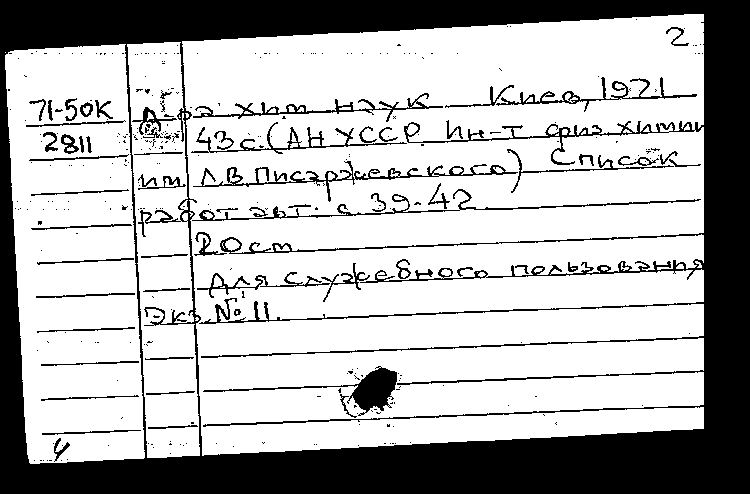 2
71-50К д-ра хим наук Киев, 1971
2811 43с. (АН УССР. Ин-т физ химии
им Л.В. Писаржевского) Список
работ авт: с. 39-42.
20 см
Для служебного пользования
Экз. № 11.
4